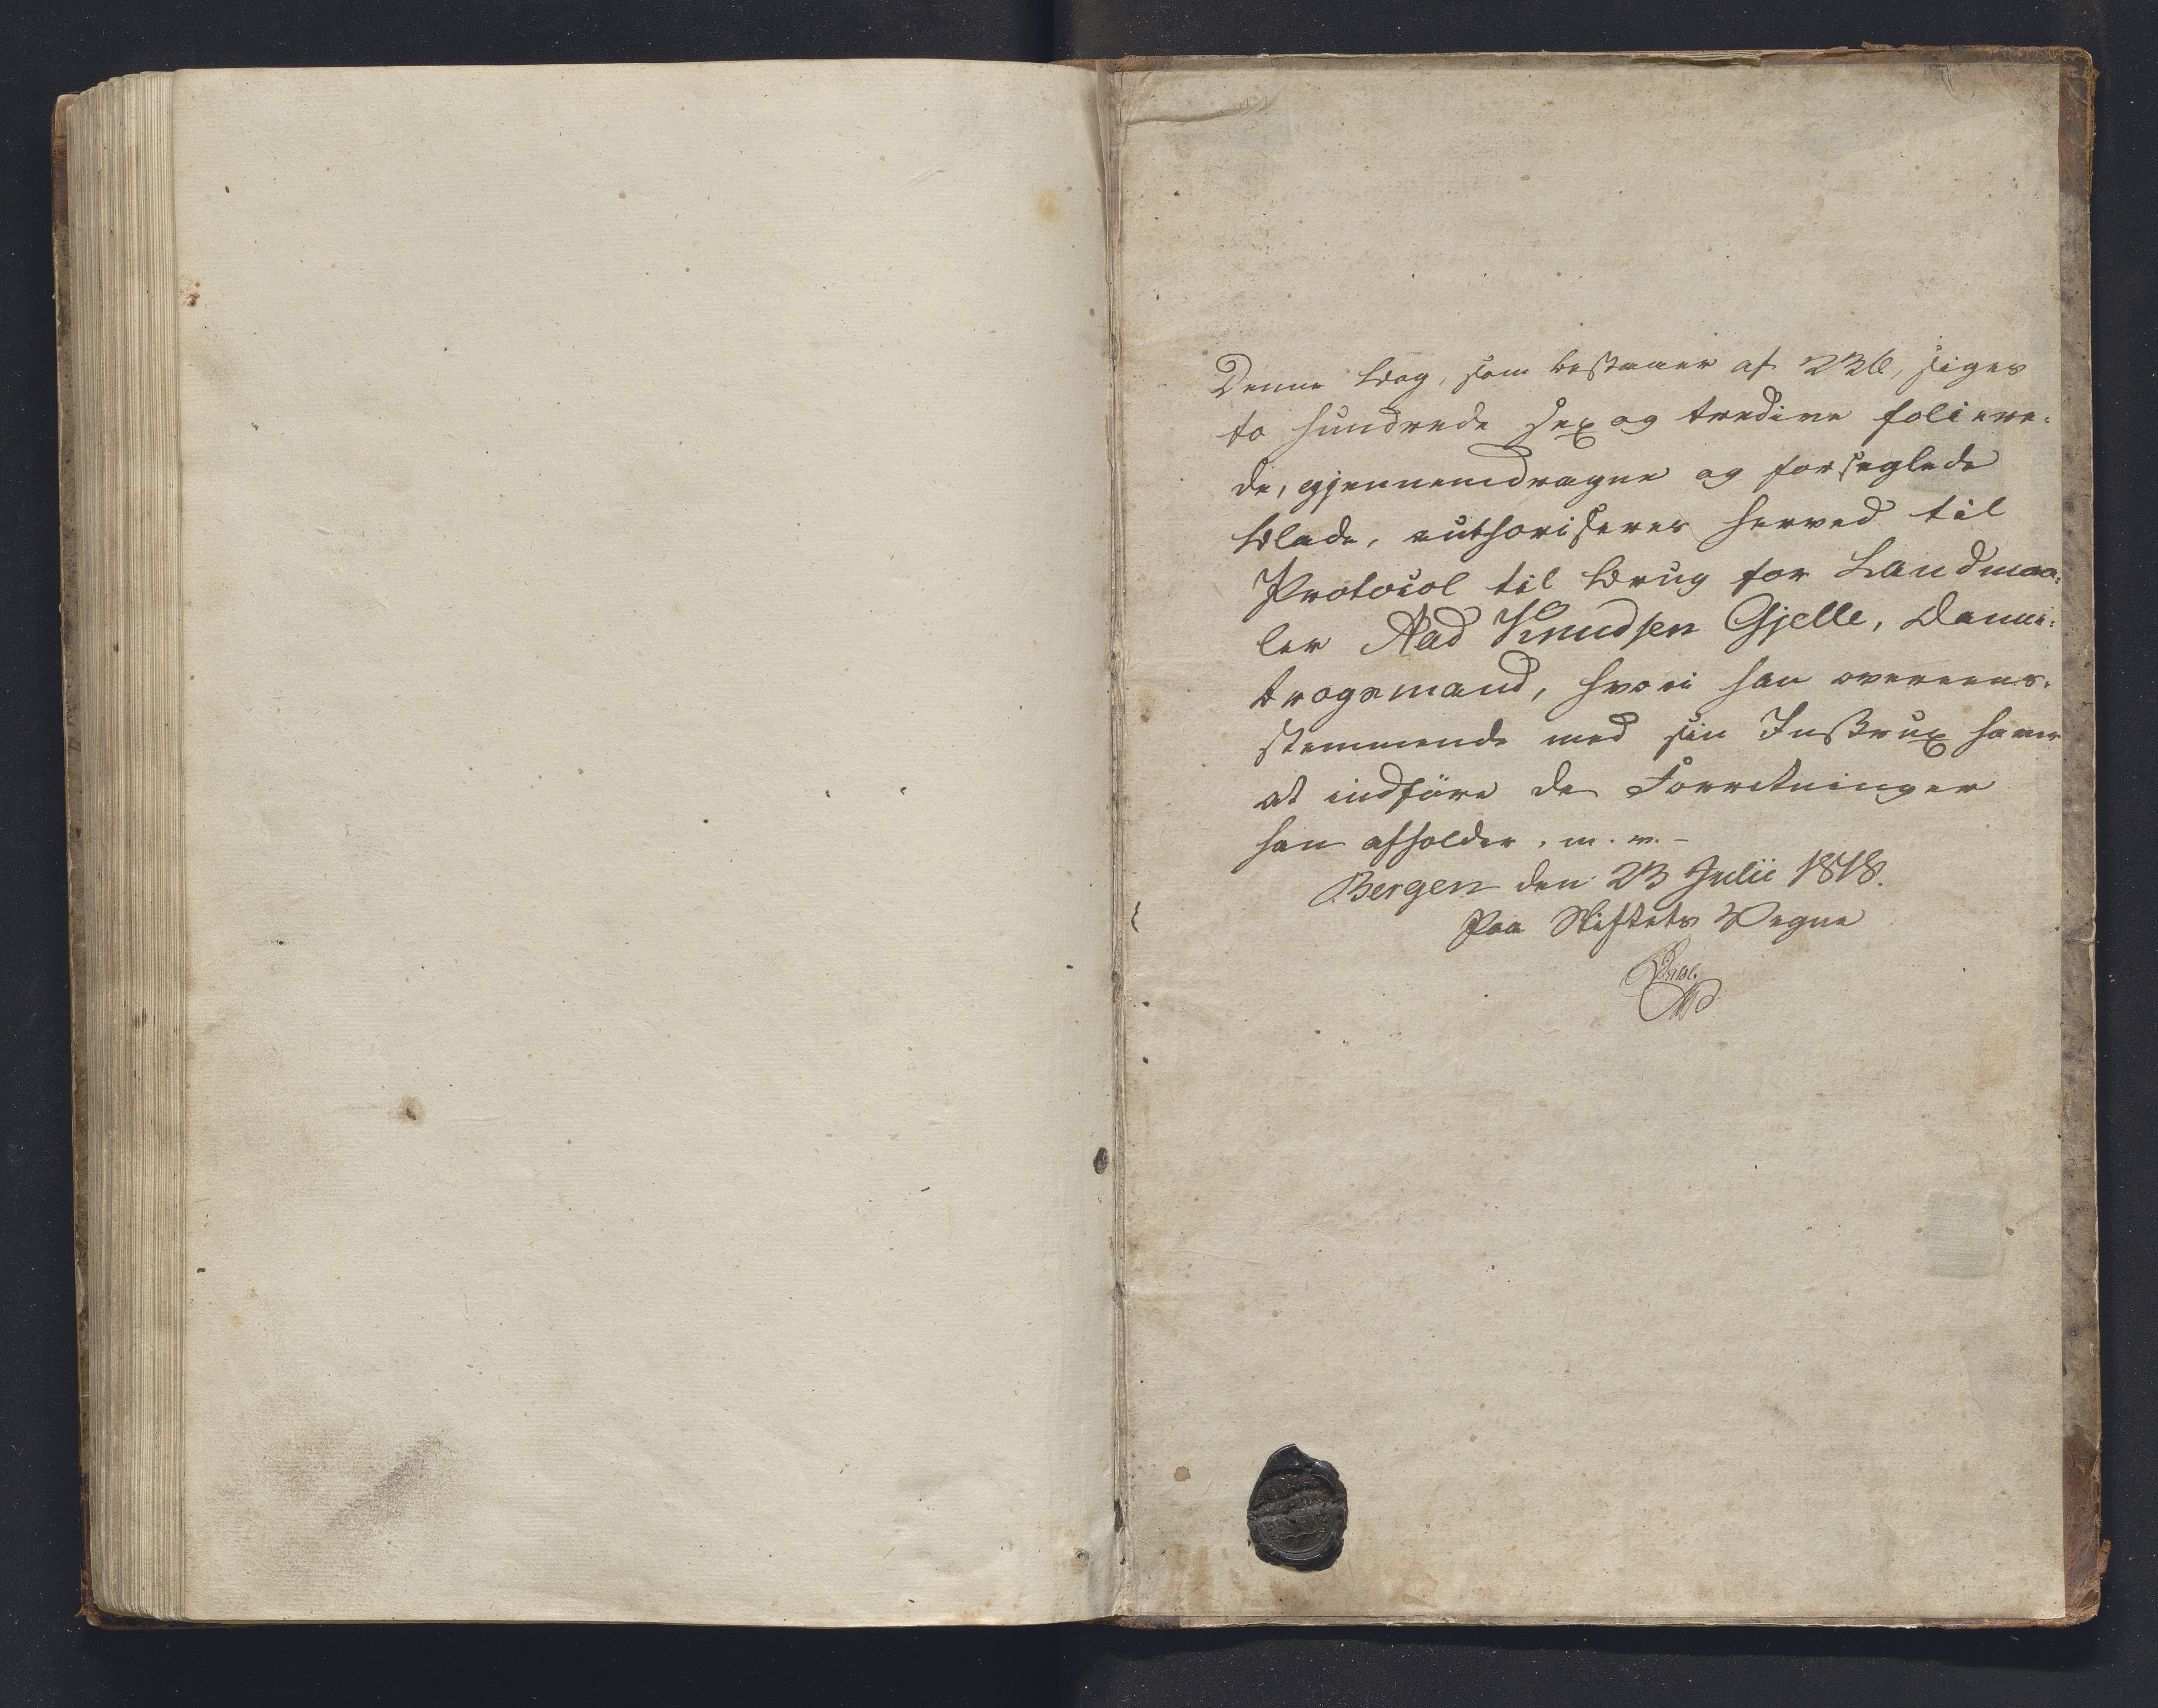 Denne Bog, som bestaaer af 236, siges
to hundrede sex og tredive foliere-
de, gjennemdragne og forseglede
Blade, authoriseres herved til
Protocol til Brug for Landmaa-
ler Aad Knudsen Gjelle, Danne-
brogsmand, hvori han overeens-
stemmende med sin Instrux haver
at indføre de Forretninger
han afholder, m. v. -
Bergen den 23 Julii 1818.
Paa Stiftets Vegne